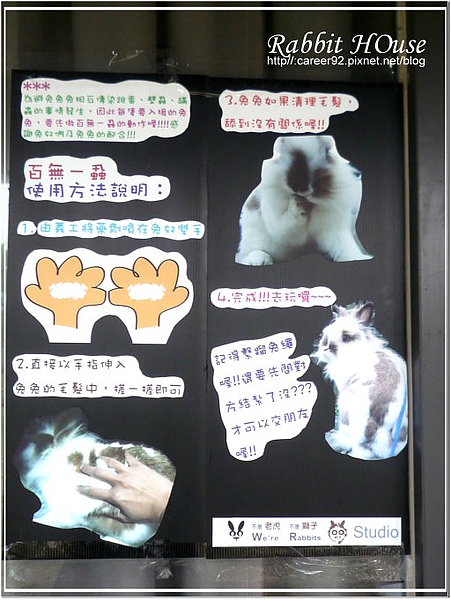 Rabbit HOuse
http//:career92.pixnet.net/blog
***
為避免兔兔相互傳染跳蚤、壁蝨、蟎
蟲的事情發生，因此每隻要入場的兔
兔，要先做百無一蟲的動作喔!!!!感
謝兔奴們及兔兔的配合!!!
百無一蝨
使用方法說明：
1.由義工將藥劑噴在兔奴雙手
2.直接以手指伸入
兔兔的毛髮中，搓一搓即可
3.兔兔如果清理毛髮，
舔到沒有關係喔!!
4.完成!!!去玩囉~~~
記得繫蹓兔繩
喔!!還要先問對
方結紮了沒???
才可以交朋友
喔!!
不是老虎 不是獅子
We're Rabbits Studio